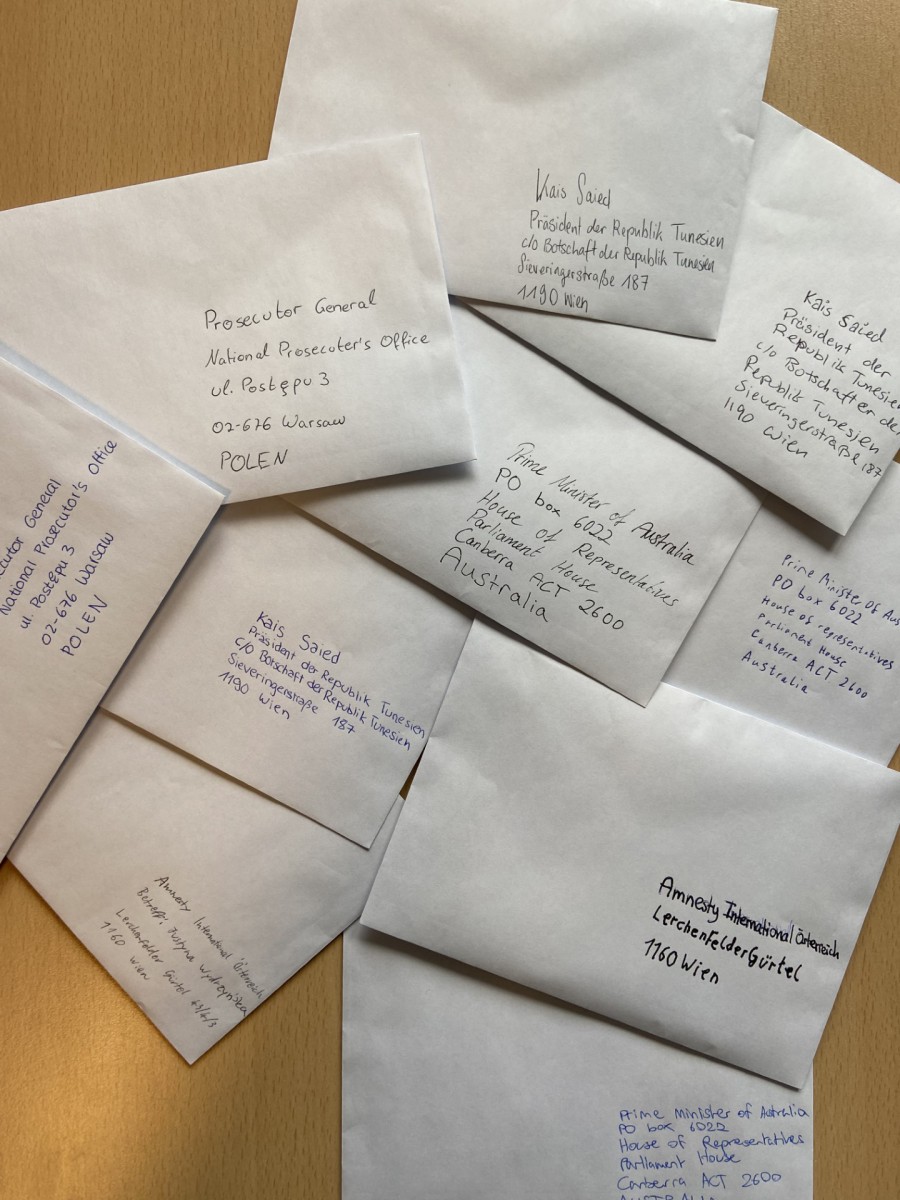 Kais Saied
Präsident der Republik Tunesien
c/o Botschaft der Republik Tunesien
Sieveringerstraße 187
1190 Wien
Prosecutor General
National Prosecuter's Office
ul. Postępu 3
02-676 Warsaw
POLEN
Kais Saied
Präsident der
Republik Tunesien
c/o Botschaft er der
Republik Tunesien
Sieveringerstraße 187
1190 Wien
Prime Minister of Australia
PO box 6022
House of Representatives
Parliament House
Canberra ACT 2600
Australia
General
National Prosecutor's Office
ul. Postępu 3
02-676 Warsaw
POLEN
Prime Minister Of
PO box 6022
House of representatives
Parliament House
Canberra ACT 2600
Australia
Kais Saied
Präsident der Republik Tunesien
c/o Botschaft der Republik Tunesien
Sieveringerstraße 187
1190 Wien
Amnesty International Österreich
Betreff: Justyna Wydrzyńska
Lerchenfelder Gürtel 43/4/3
1160 Wien
Amnesty International Österreich
LerchenFelderGürtel
1160 Wien
Prime Minister of Australia
PO box 6022
House of Representatives
Parliament House
Canberra ACT 2600
AUSTRALIA